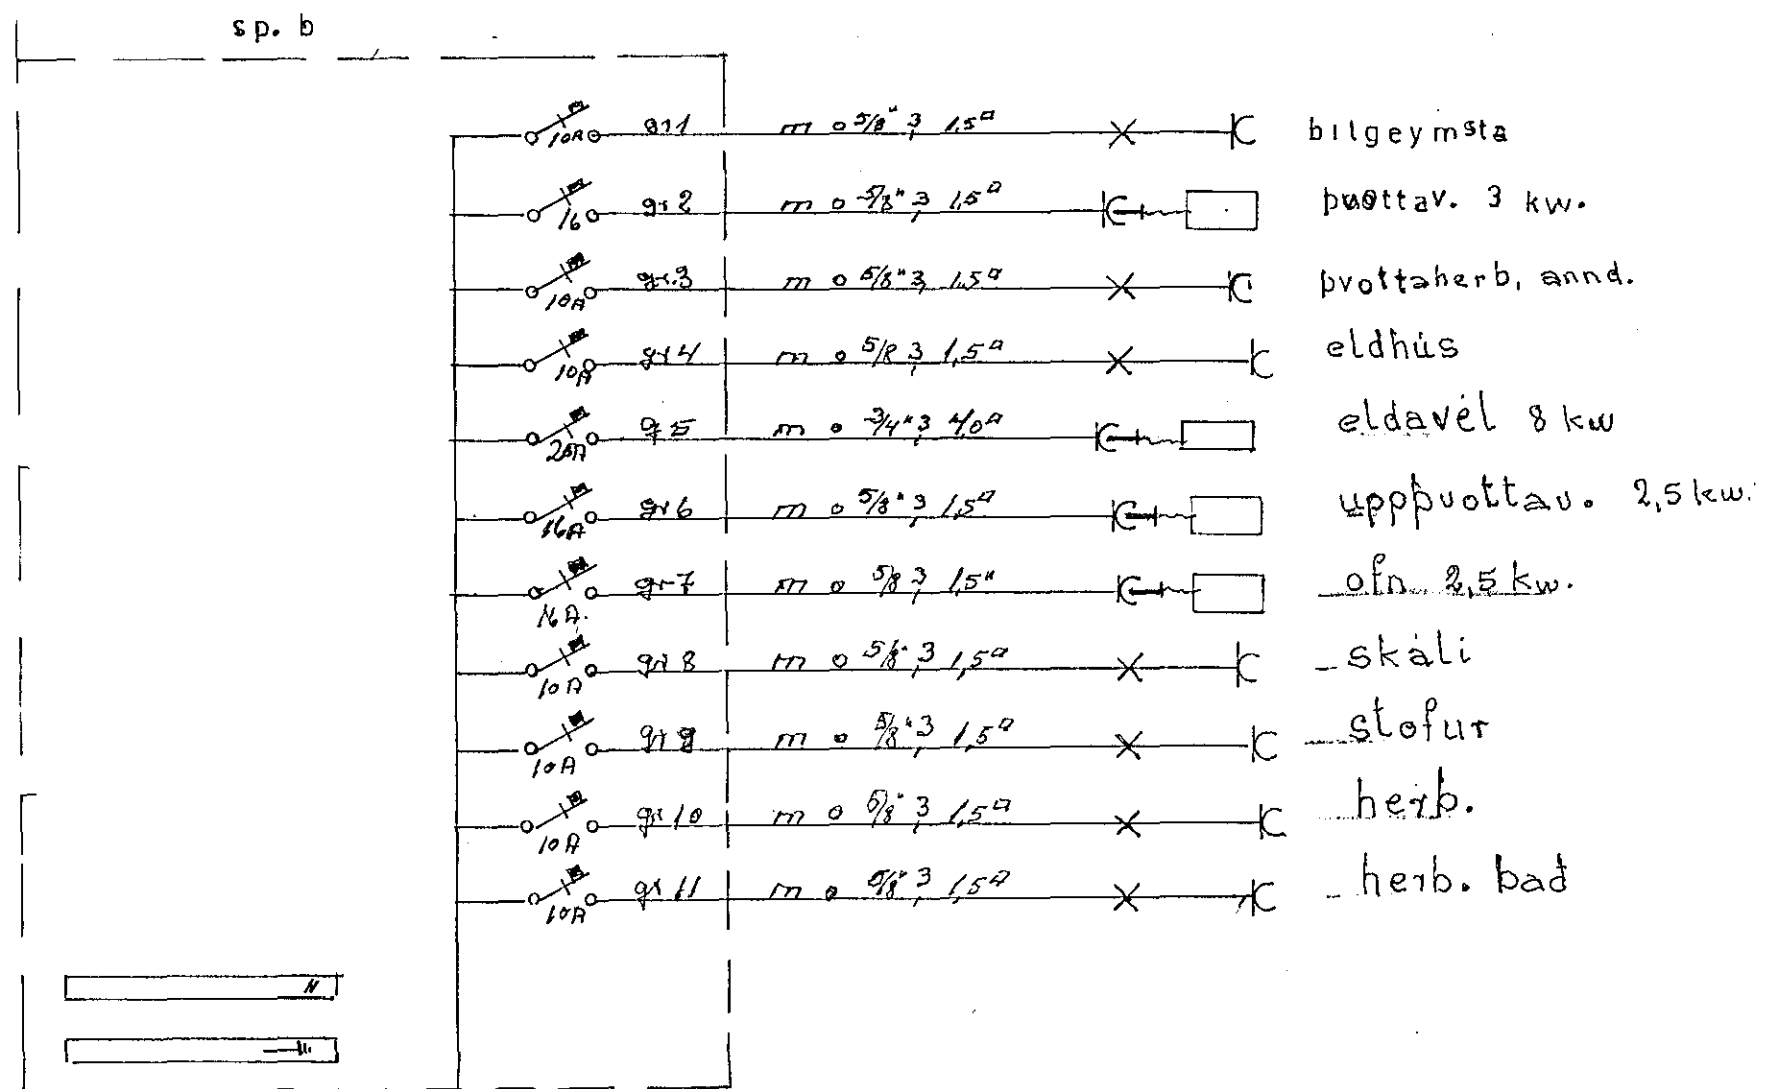 sp. b
10A gr1 m 5/8" 3, 1,5▫ bílgeymsla
16 gr2 m 5/8" 3, 1,5▫ þvottav. 3 kw.
10A gr.3 m 5/8" 3, 1,5▫ þvottaherb, annd.
10A gr4 m 5/8 3, 1,5▫ eldhús
gr5 m 3/4" 3 4,0▫ eldavél 8 kw
16A gr6 m 5/8" 3, 1,5▫ uppþvottav. 2,5 kw.
16A. gr7 m 5/8 3, 1,5" ofn 2,5 kw.
10A gr8 m 5/8" 3, 1,5▫ skáli
10A gr9 m 5/8" 3, 1,5▫ stofur
10A gr10 m 5/8" 3, 1,5▫ herb.
10A gr11 m 5/8" 3, 1,5▫ herb. bað
N